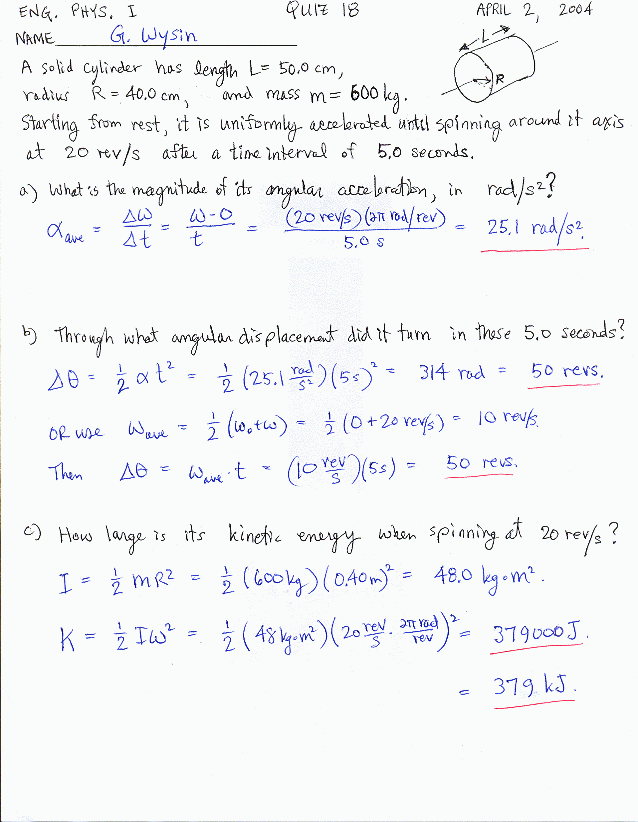 ENG. PHYS. I QUIZ 18 APRIL 2, 2004
NAME G. Wysin
L
R
A solid cylinder has length L = 50.0 cm,
radius R = 40.0 cm, and mass m = 600 kg.
Starting from rest, it is uniformly accelerated until spinning around it axis
at 20 rev/s after a time interval of 5.0 seconds.
a) What is the magnitude of its angular acceleration, in rad/s²?
α_ave = Δω/Δt = (ω-0)/t = (20 rev/s)(2π rad/rev)/5.0 s = 25.1 rad/s².
b) Through what angular displacement did it turn in these 5.0 seconds?
Δθ = 1/2 αt² = 1/2 (25.1 rad/s²)(5s)² = 314 rad = 50 revs.
OR use ω_ave = 1/2 (ω₀+ω) = 1/2 (0+20 rev/s) = 10 rev/s.
Then Δθ = ω_ave·t = (10 rev/s)(5s) = 50 revs.
c) How large is its kinetic energy when spinning at 20 rev/s?
I = 1/2 mR² = 1/2 (600 kg)(0.40m)² = 48.0 kg·m².
K = 1/2 Iω² = 1/2 (48 kg·m²)(20 rev/s · 2π rad/rev)² = 379000 J.
= 379 kJ.